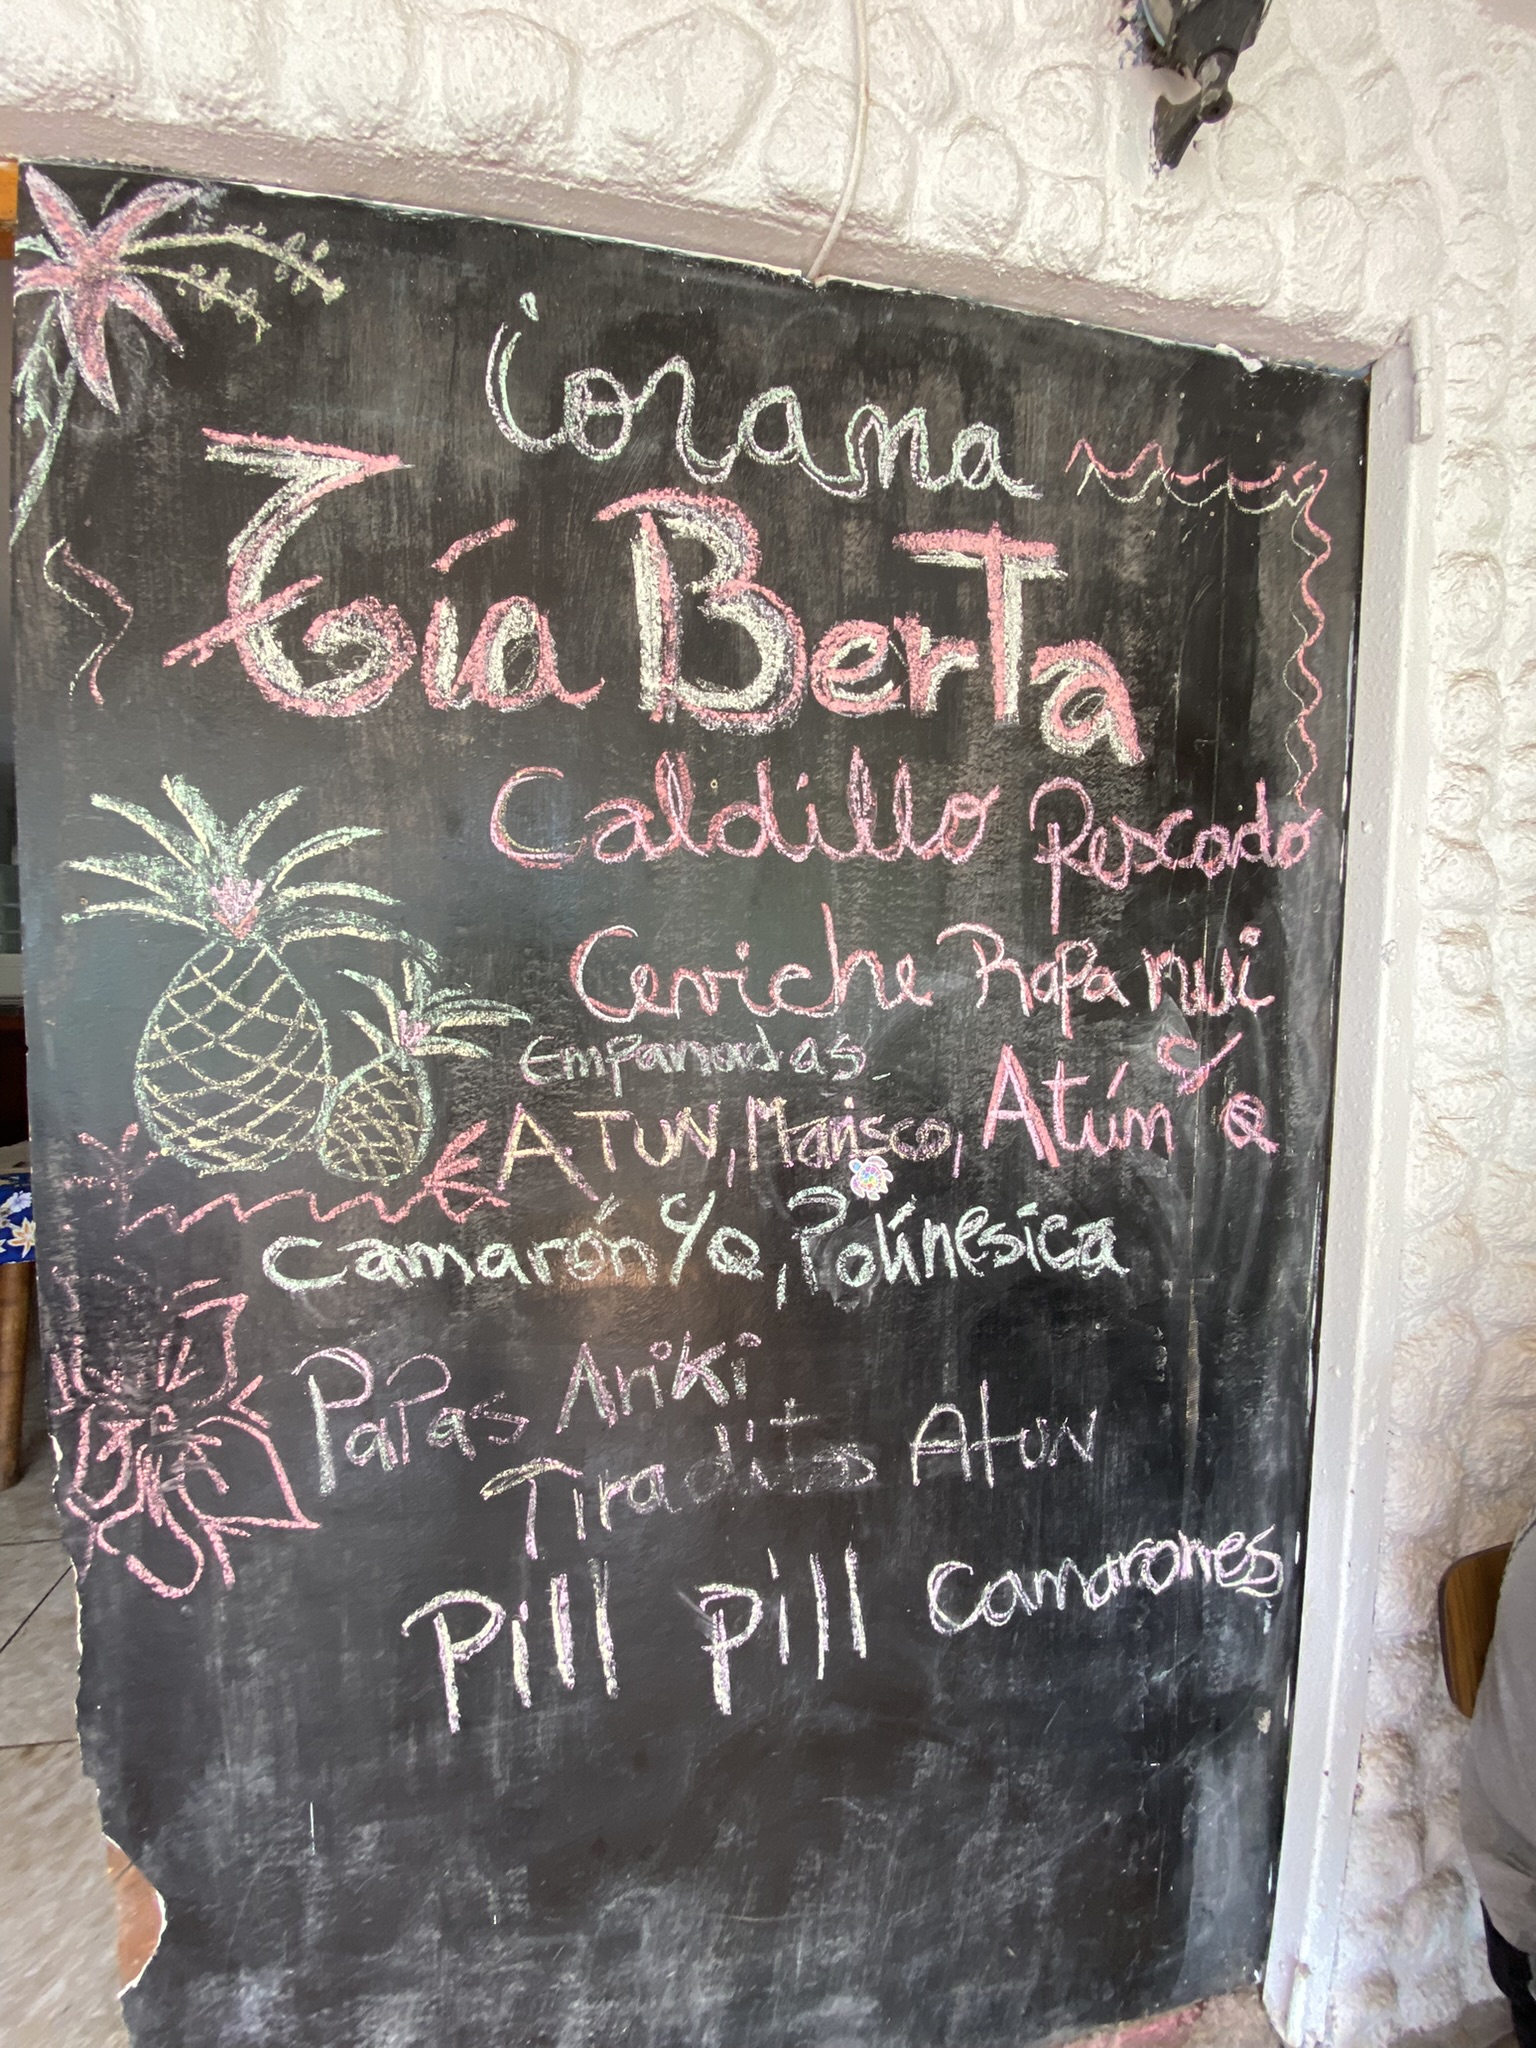 iorana
Tía Berta
Caldillo Pescado
Ceviche Rapa nui
Empanadas
ATUN, Marisco, Atún y Q
Camarón y Q, Polínesica
Papas Ariki
Tiradito Atun
Pill pill Camarones